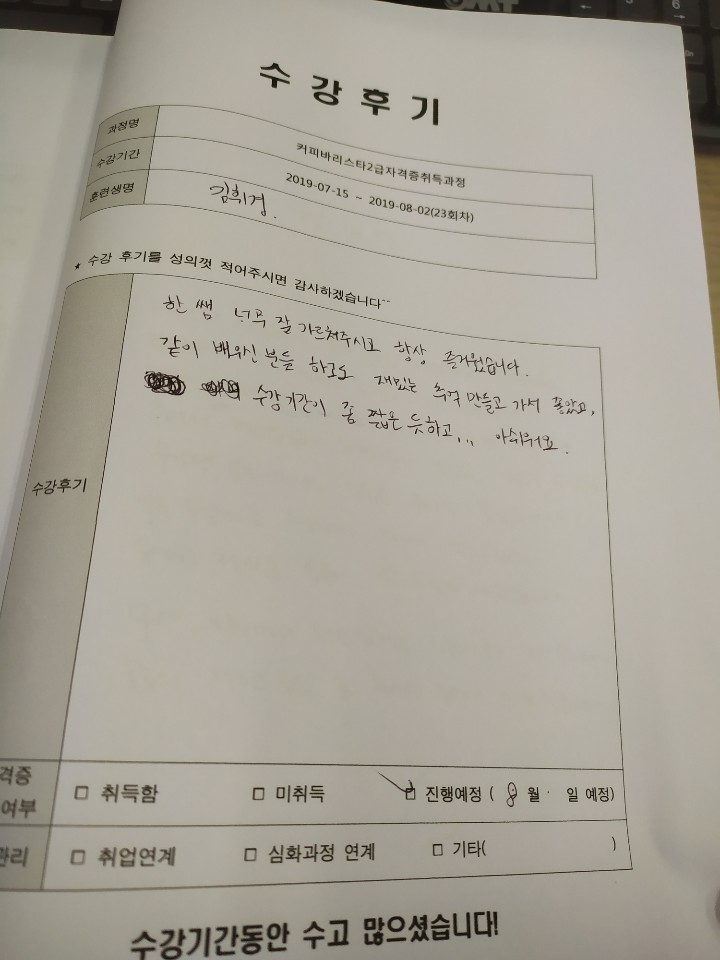 수 강 후 기
과정명 커피바리스타2급자격증취득과정
수강기간 2019-07-15 ~ 2019-08-02(23회차)
훈련생명 김희경.
★ 수강 후기를 성의껏 적어주시면 감사하겠습니다^^
한 쌤 너무 잘 가르쳐주시고 항상 즐거웠습니다.
같이 배우신 분들 하고도 재밌는 추억 만들고 가서 좋았고,
수강기간이 좀 짧은 듯하고... 아쉬워요.
수강후기
격증
여부 □ 취득함 □ 미취득 □ 진행예정 ( 8 월 일 예정)
관리 □ 취업연계 □ 심화과정 연계 □ 기타( )
수강기간동안 수고 많으셨습니다!